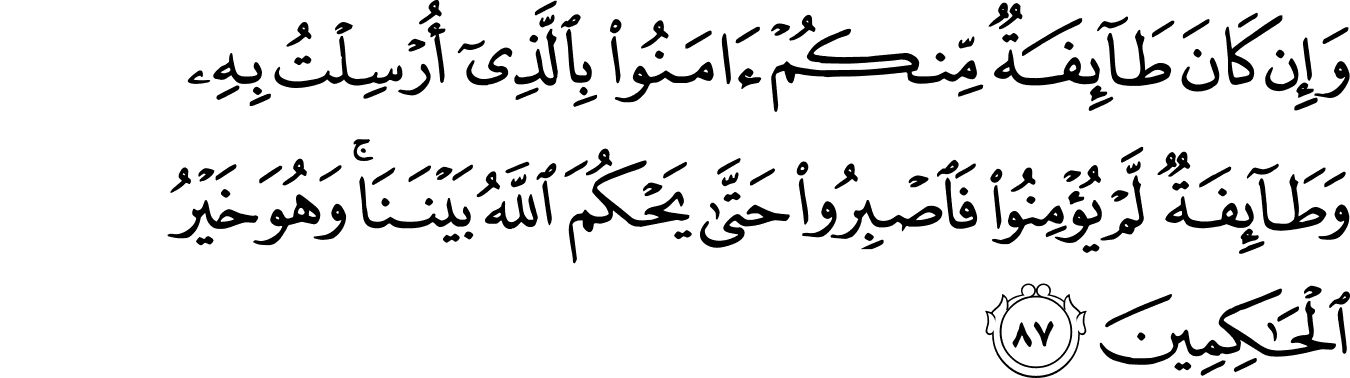 وَإِن كَانَ طَآئِفَةٌ مِّنكُمْ ءَامَنُوا۟ بِٱلَّذِىٓ أُرْسِلْتُ بِهِۦ
وَطَآئِفَةٌ لَّمْ يُؤْمِنُوا۟ فَٱصْبِرُوا۟ حَتَّىٰ يَحْكُمَ ٱللَّهُ بَيْنَنَا ۚ وَهُوَ خَيْرُ
ٱلْحَـٰكِمِينَ ٨٧